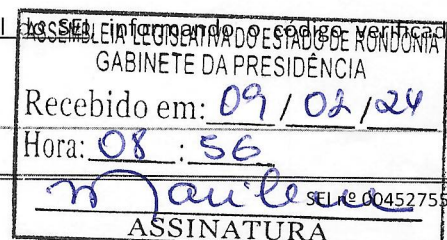 l do SEI, informando o código verificad
ASSEMBLEIA LEGISLATIVA DO ESTADO DE RONDÔNIA
GABINETE DA PRESIDÊNCIA
Recebido em: 09 / 02 / 24
Hora: 08 : 56
Marilena
SEI nº 00452755
ASSINATURA